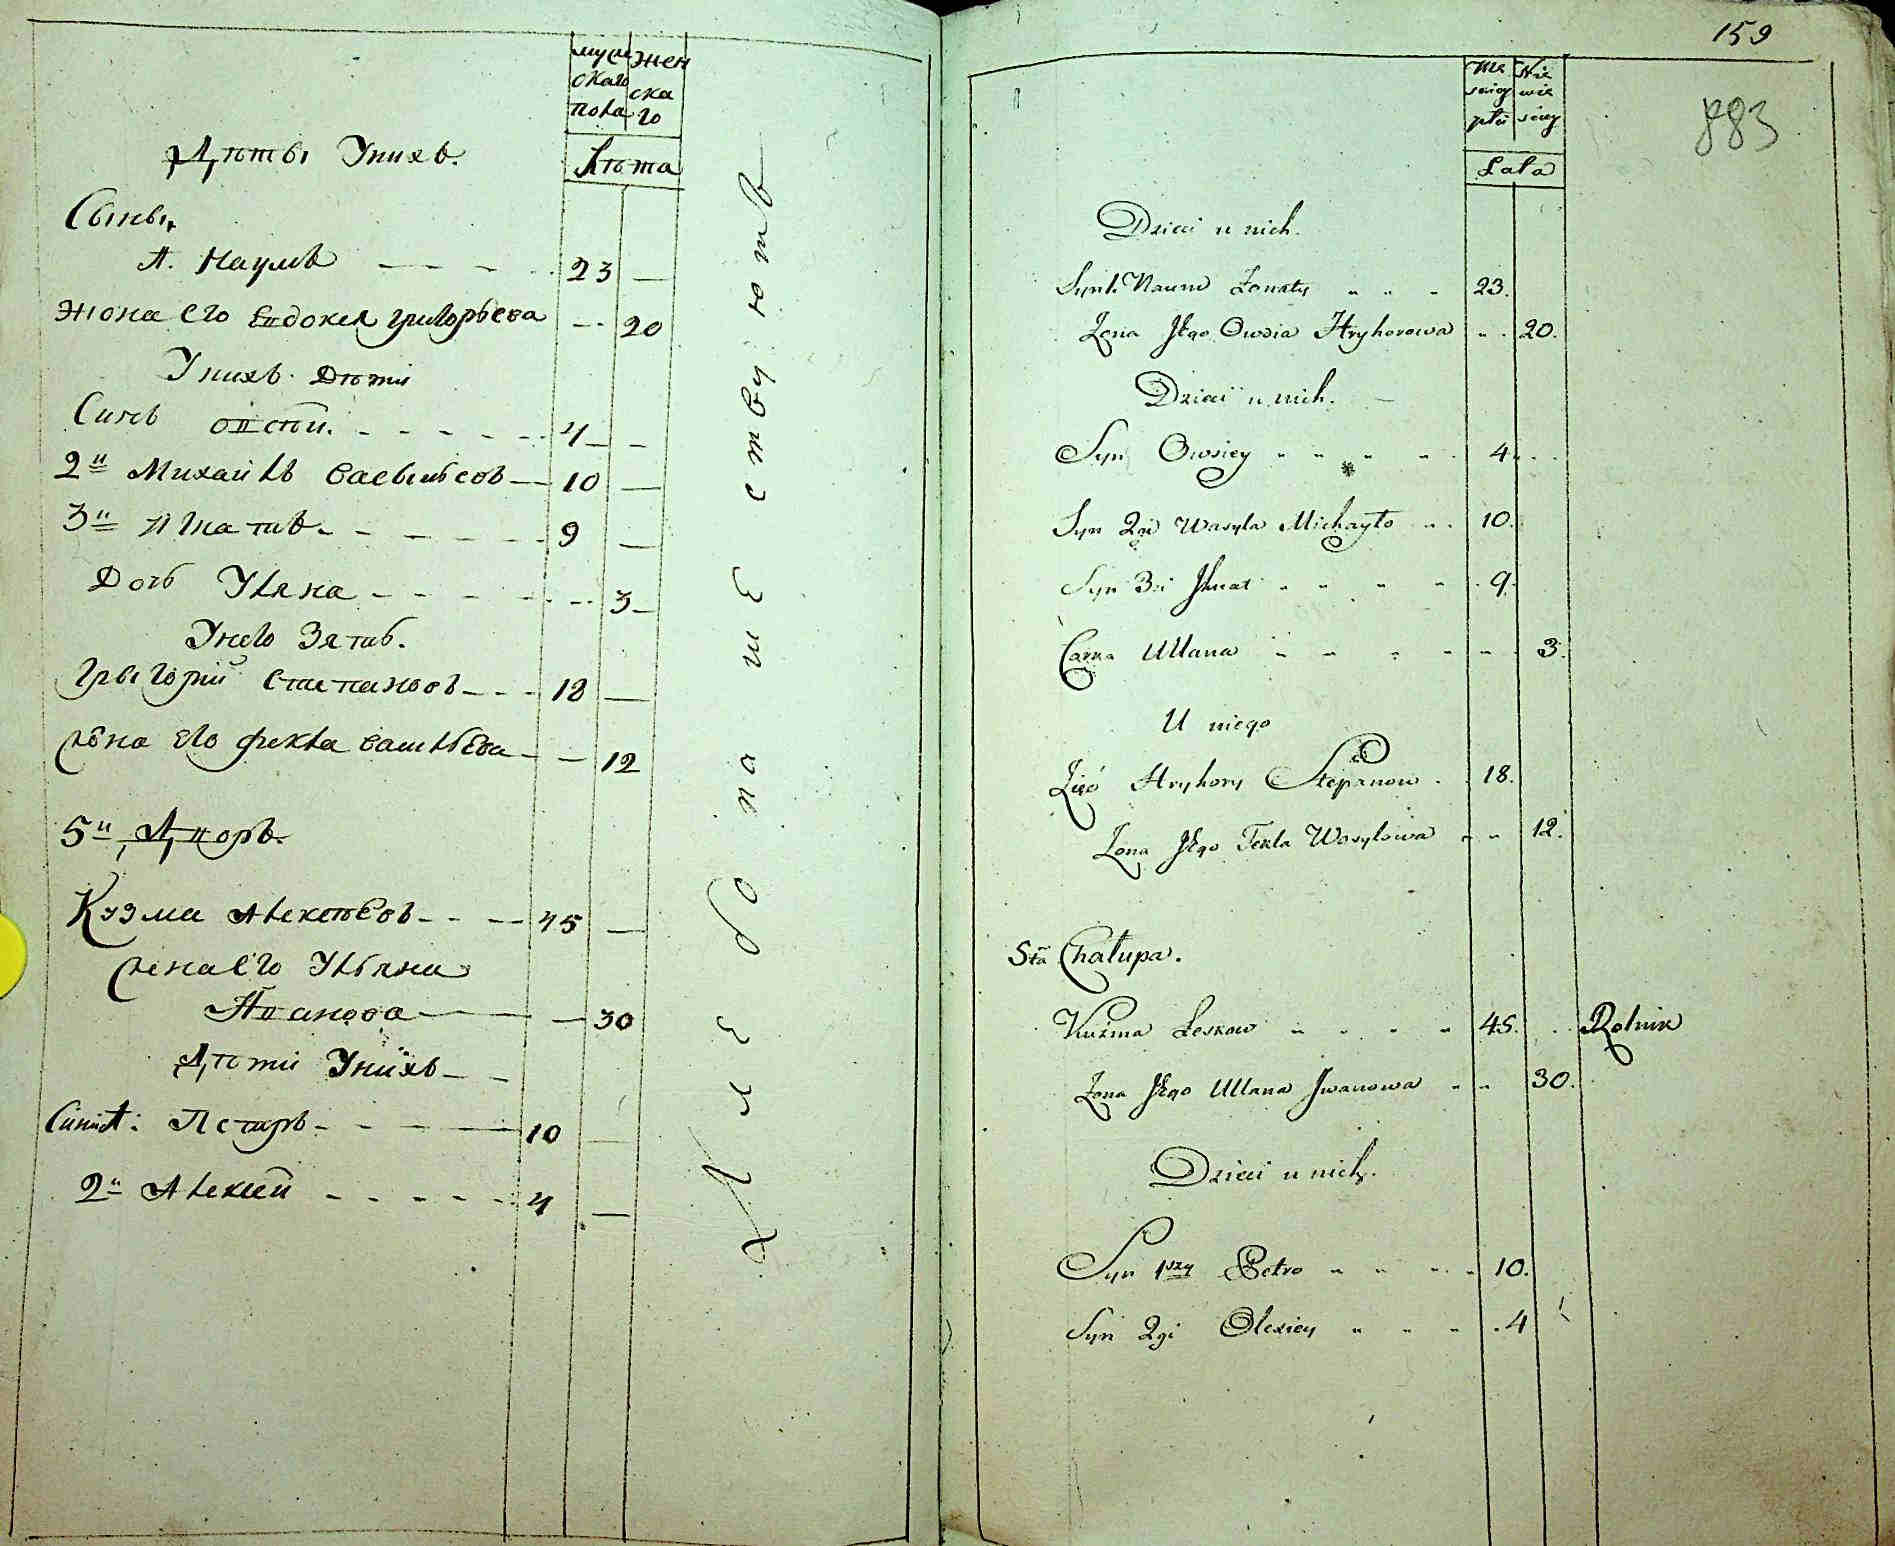 мужскаго пола женскаго
Лѣта
Дѣти У нихъ.
Сыны,
А. Наумъ 23
жона его Евдокея григорьева 20
У нихъ Дѣти
Синъ овсѣи. 4
2й Михайлъ васыльевъ 10
3й Игнатъ 9
Дочь Уляна 3
У него Зять.
Грыгорий степановъ 18
жена его фекла васильева 12
5й Дворъ.
Кузма Алексѣевъ 45
жена его Ульяна
Иванова 30
Дѣти У нихъ
Синъ А: Петръ 10
2й Алексей 4
Хлебопашествуютъ
159
883
Męskiey płci Niewieściey
Lata
Dzieci u nich.
Syn 1. Naum Żonaty 23.
Żona Jego Owdia Hryhorowa 20.
Dzieci u nich.
Syn Owsiey 4
Syn 2gi Wasyla Michayło 10.
Syn 3ci Ihnat 9.
Carka Ullana 3.
U niego
Zięć Hryhory Stepanow 18.
Żona Jego Tekla Wasylowa 12.
5ta Chałupa.
Kuźma Leskow 45. Rolnik
Żona Jego Ullana Jwanowa 30.
Dzieci u nich.
Syn 1szy Petro 10.
Syn 2gi Olexiey 4